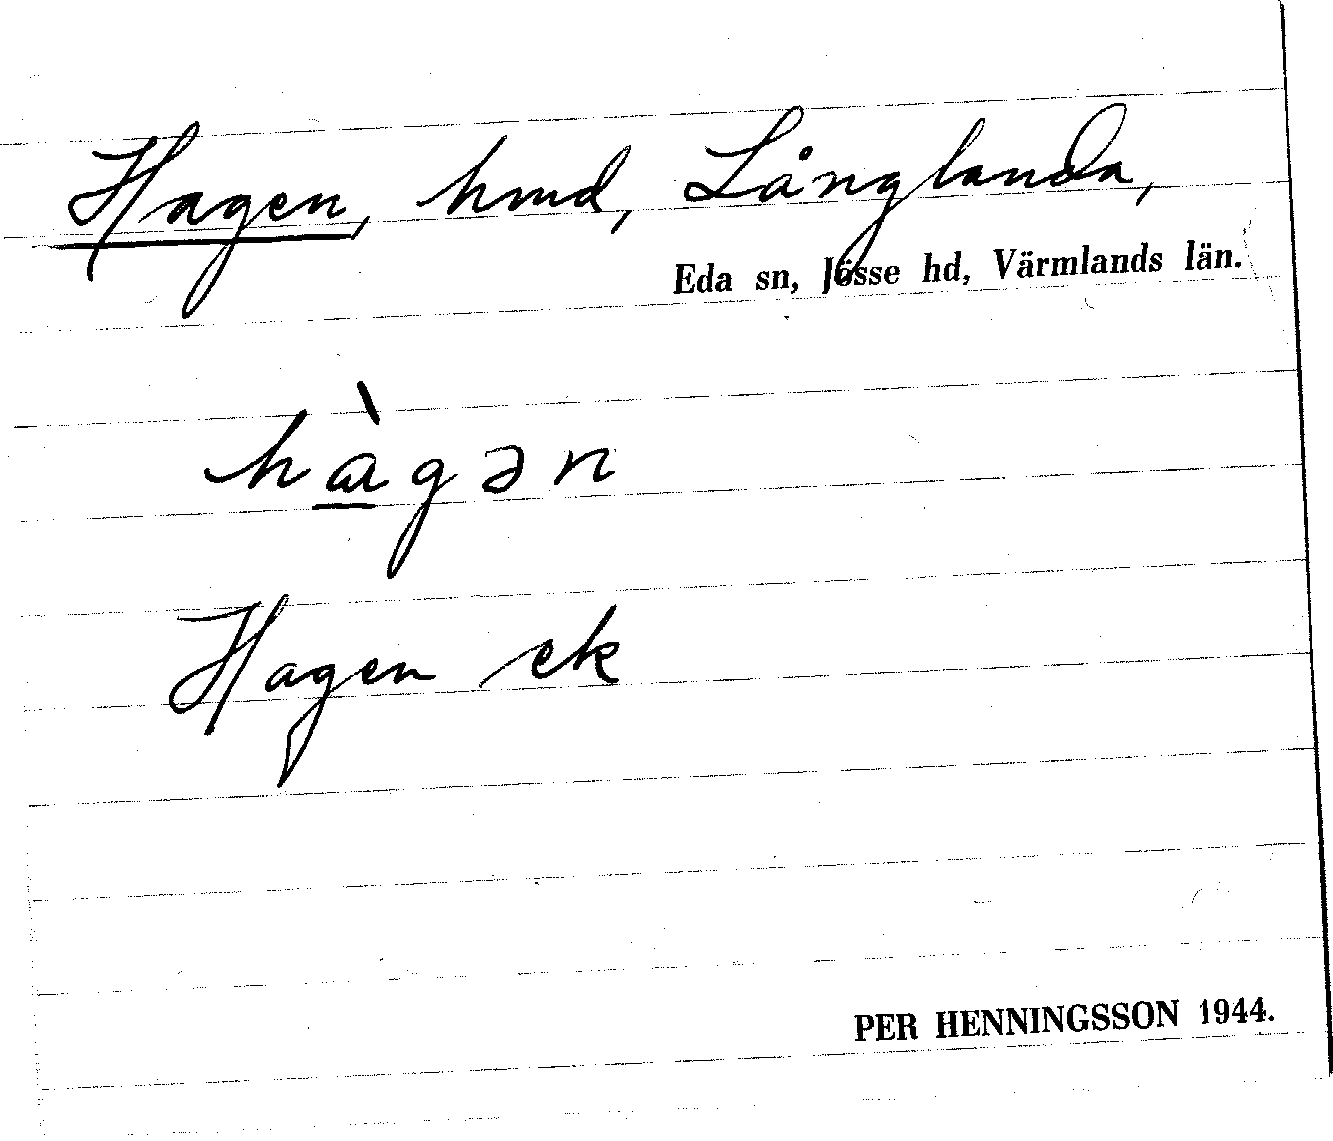 Hagen, hmd, Långlanda,
Eda sn, Jösse hd, Värmlands län.
hàgən
Hagen ek
PER HENNINGSSON 1944.